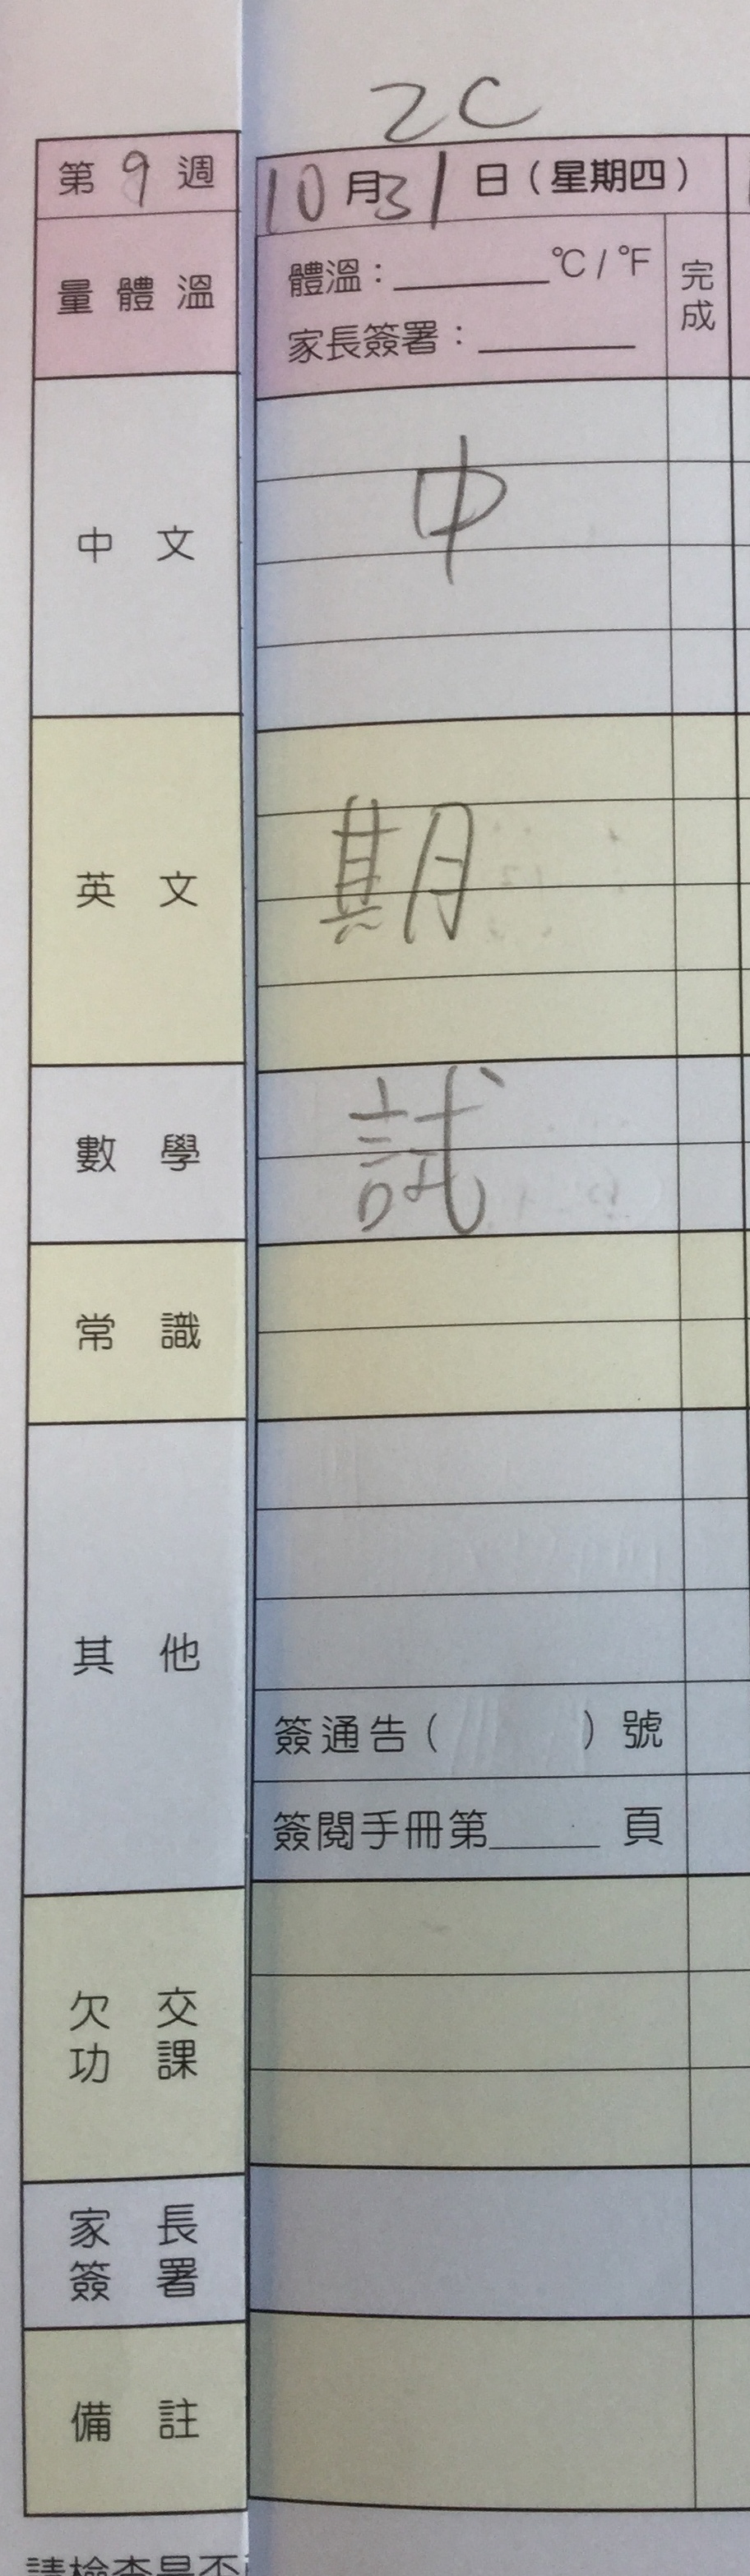 2C
第9週 10月31日（星期四）
量體溫 體溫：______℃/℉ 完成
家長簽署：______
中文 中
英文 期
數學 試
常識
其他
簽通告（ ）號
簽閱手冊第______頁
欠交功課
家長簽署
備註
請檢查是否